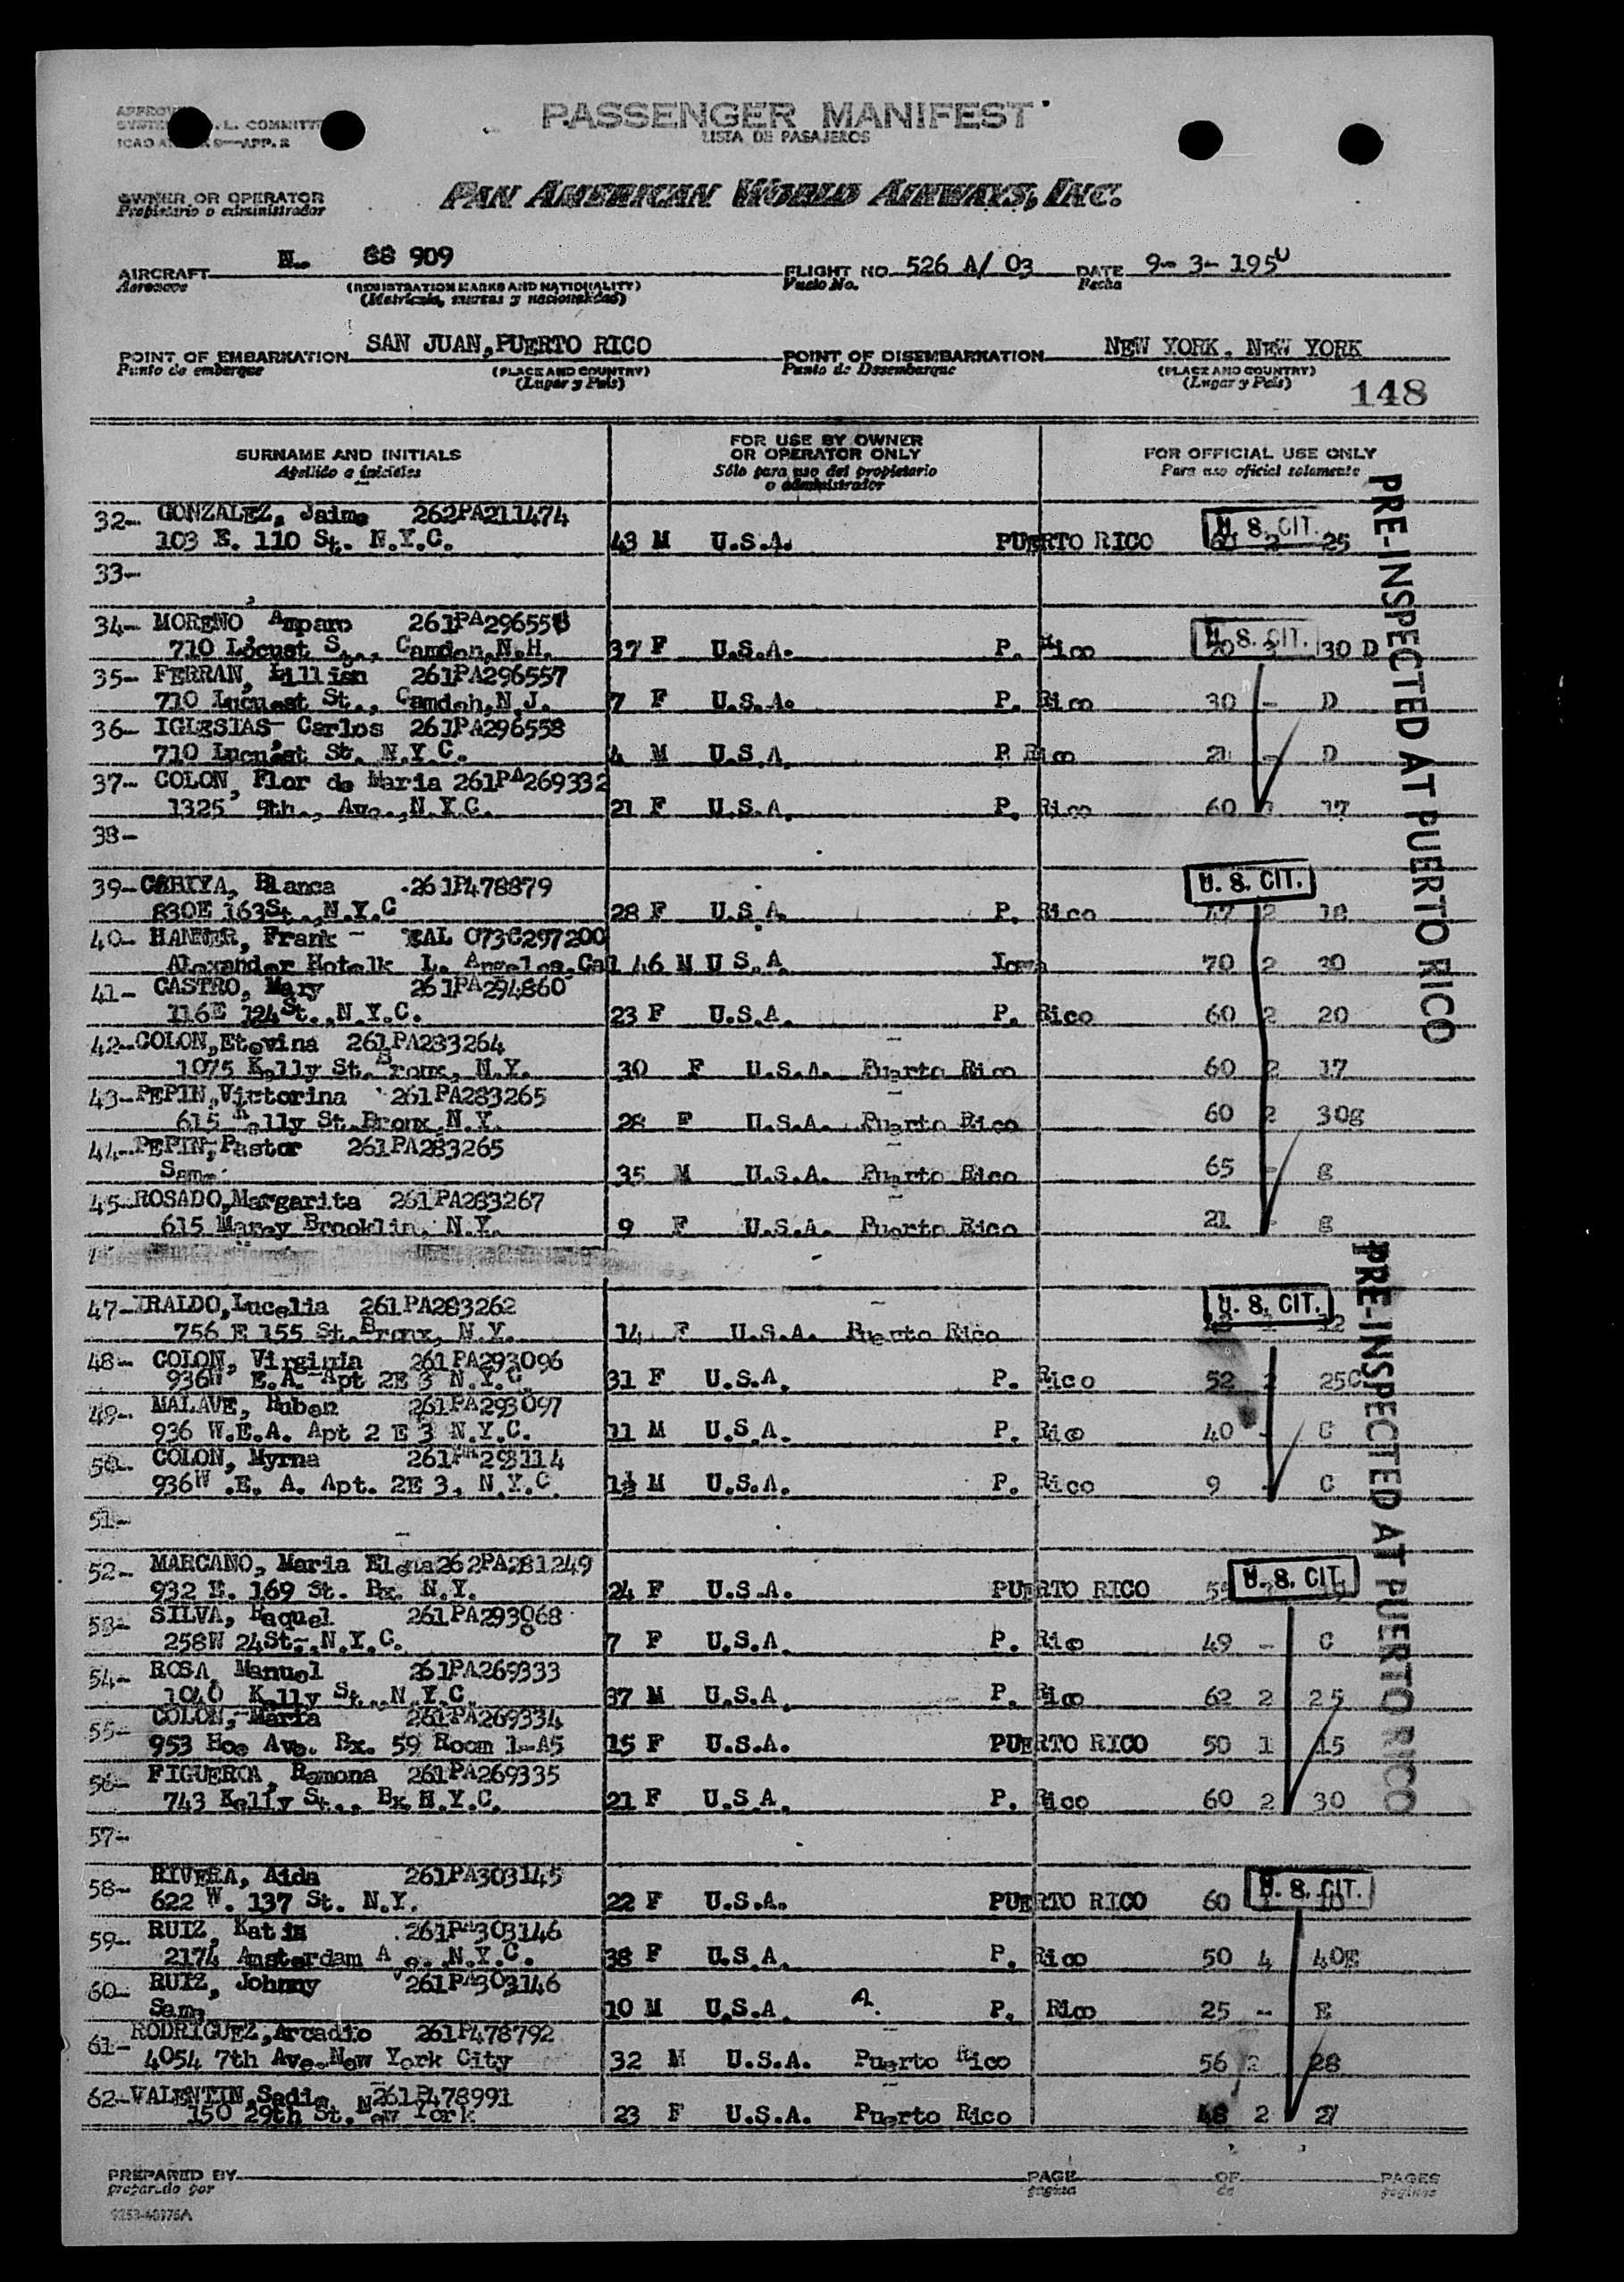 PASSENGER MANIFEST
LISTA DE PASAJEROS
OWNER OR OPERATOR
Propietario o administrador
PAN AMERICAN WORLD AIRWAYS, INC.
AIRCRAFT N. 88 909 FLIGHT NO. 526 A/ 03 DATE 9- 3- 1950
Aeronave Vuelo No. Fecha
(REGISTRATION MARKS AND NATIONALITY)
(Matrícula, marcas y nacionalidad)
POINT OF EMBARKATION SAN JUAN,PUERTO RICO POINT OF DISEMBARKATION NEW YORK, NEW YORK
Punto de embarque (PLACE AND COUNTRY) Punto de Desembarque (PLACE AND COUNTRY)
(Lugar y País) (Lugar y País)
148
SURNAME AND INITIALS
Apellido e iniciales
FOR USE BY OWNER
OR OPERATOR ONLY
Sólo para uso del propietario
o administrador
FOR OFFICIAL USE ONLY
Para uso oficial solamente
PRE-INSPECTED AT PUERTO RICO
32- GONZALEZ, Jaime 262PA211474 U. S. CIT.
103 E. 110 St. N.Y.C. 43 M U.S.A. PUERTO RICO 25
33-
34- MORENO Amparo U. S. CIT.
710 Locust St., Camden,N.H. 37 F U.S.A. P. Rico 30 D
35- FERRAN, Lillian 261PA296557
710 Lucuest St., Camdeh,N.J. 7 F U.S.A. P. Rico 30 - D
36- IGLESIAS Carlos 261PA296558
710 Lucuest St. N.Y.C. 4 M U.S.A. P Rico 21 - D
37- COLON, Flor de Maria 261PA269332
1325 9th., Ave.,N.Y.C. 21 F U.S.A. P. Rico 60 17
38-
39- Blanca 261P478879 U. S. CIT.
830E 163St.,N.Y.C 28 F U.S.A. P. Rico 2 18
40- Frank 073C297200
Alexander Hotelk L. Angeles,Cal 46 M U S.A. 70 2 30
41- CASTRO, Mary 261PA294860
116E 124St.,N.Y.C. 23 F U.S.A. P. Rico 60 2 20
42-COLON,Etevina 261PA283264
1075 Kelly St.Bronx, N.Y. 30 F U.S.A. Puerto Rico 60 2 17
43-PEPIN,Victorina 261PA283265
615 Kelly St.Bronx,N.Y. 28 F U.S.A. Puerto Rico 60 2 30g
44-PEPIN,Pastor 261PA283265
Same 35 M U.S.A. Puerto Rico 65 - g
45-ROSADO,Margarita 261PA283267
615 Marcy Brooklin, N.Y. 9 F U.S.A. Puerto Rico 21 - g
PRE-INSPECTED AT PUERTO RICO
47-IRALDO,Lucelia 261PA283262 U. S. CIT.
756 E 155 St.Bronx, N.Y. 14 F U.S.A. Puerto Rico
48- COLON, Virginia 261PA293096
936W E.A. Apt 2E 3 N.Y.C. 31 F U.S.A. P. Rico 52 2 25C
49- MALAVE, Ruben 261PA293097
936 W.E.A. Apt 2 E 3 N.Y.C. 11 M U.S.A. P. Rico 40 - C
50- COLON, Myrna
936W .E. A. Apt. 2E 3, N.Y.C. 1½ M U.S.A. P. Rico 9 - C
51-
52- MARCANO, Maria Elena262PA281249 U. S. CIT.
932 E. 169 St. Bx. N.Y. 24 F U.S.A. PUERTO RICO
53- SILVA, Raquel 261PA293068
258W 24St.,N.Y.C. 7 F U.S.A P. Rico 49 - C
54- ROSA, Manuel 261PA269333
1040 Kelly St.,N.Y.C. 37 M U.S.A P. Rico 62 2 25
55- COLON, Maria 261PA269334
953 Hoe Ave. Bx. 59 Room 1-A5 15 F U.S.A. PUERTO RICO 50 1 15
56- FIGUEROA, Ramona 261PA269335
743 Kelly St., Bx.N.Y.C. 21 F U.S.A. P. Rico 60 2 30
57-
58- RIVERA, Aida 261PA303145 U. S. CIT.
622 W. 137 St. N.Y. 22 F U.S.A. PUERTO RICO 60 10
59- RUIZ, 261PA303146
2174 Amsterdam A e.,N.Y.C. 38 F U.S.A. P. Rico 50 4 40E
60- RUIZ, Johnny 261PA303146
Same 10 M U.S.A A. P. Rico 25 - E
61- RODRIGUEZ,Arcadio 261P478792
4054 7th Ave.New York City 32 M U.S.A. Puerto Rico 56 2 28
62-VALENTIN,Sadie 261P478991
150 29th St. New York 23 F U.S.A. Puerto Rico 48 2 27
PREPARED BY PAGE OF PAGES
preparado por página de páginas